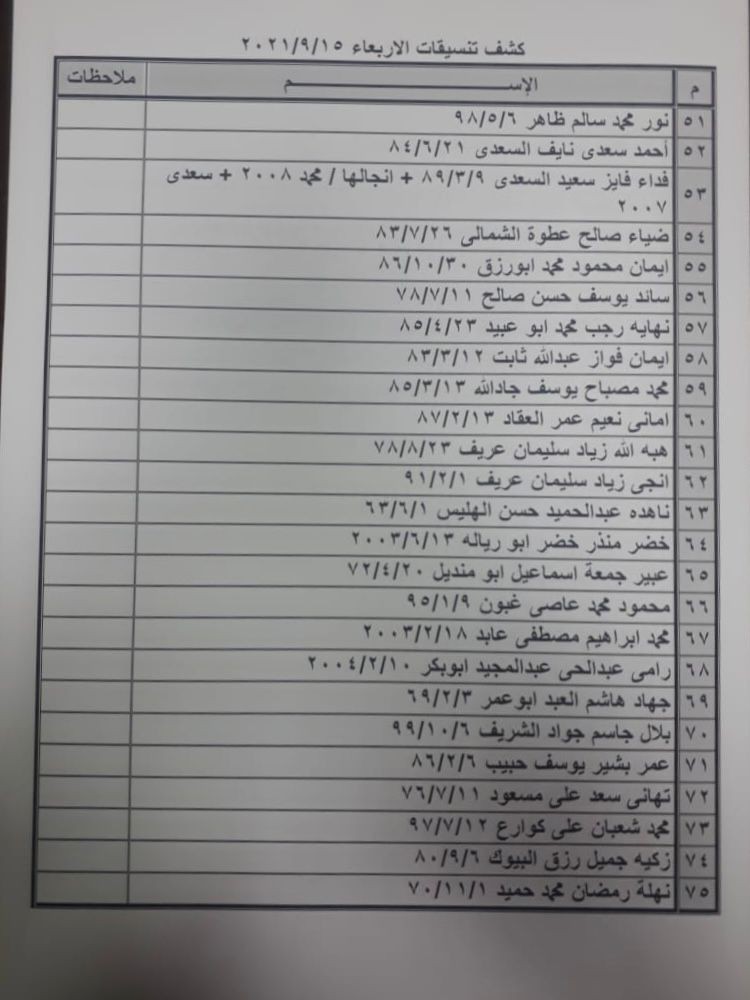 كشف تنسيقات الاربعاء ٢٠٢١/٩/١٥
م الإســـــــــــم ملاحظات
٥١ نور محمد سالم ظاهر ٩٨/٥/٦
٥٢ أحمد سعدى نايف السعدى ٨٤/٦/٢١
٥٣ فداء فايز سعيد السعدى ٨٩/٣/٩ + انجالها / محمد ٢٠٠٨ + سعدى
٢٠٠٧
٥٤ ضياء صالح عطوة الشمالى ٨٣/٧/٢٦
٥٥ ايمان محمود محمد ابورزق ٨٦/١٠/٣٠
٥٦ سائد يوسف حسن صالح ٧٨/٧/١١
٥٧ نهايه رجب محمد ابو عبيد ٨٥/٤/٢٣
٥٨ ايمان فواز عبدالله ثابت ٨٣/٣/١٢
٥٩ محمد مصباح يوسف جادالله ٨٥/٣/١٣
٦٠ امانى نعيم عمر العقاد ٨٧/٢/١٣
٦١ هبه الله زياد سليمان عريف ٧٨/٨/٢٣
٦٢ انجى زياد سليمان عريف ٩١/٢/١
٦٣ ناهده عبدالحميد حسن الهليس ٦٣/٦/١
٦٤ خضر منذر خضر ابو رياله ٢٠٠٣/٦/١٣
٦٥ عبير جمعة اسماعيل ابو منديل ٧٢/٤/٢٠
٦٦ محمود محمد عاصى غبون ٩٥/١/٩
٦٧ محمد ابراهيم مصطفى عابد ٢٠٠٣/٢/١٨
٦٨ رامى عبدالحى عبدالمجيد ابوبكر ٢٠٠٤/٢/١٠
٦٩ جهاد هاشم العبد ابوعمر ٦٩/٢/٣
٧٠ بلال جاسم جواد الشريف ٩٩/١٠/٦
٧١ عمر بشير يوسف حبيب ٨٦/٢/٦
٧٢ تهانى سعد على مسعود ٧٦/٧/١١
٧٣ محمد شعبان على كوارع ٩٧/٧/١٢
٧٤ زكيه جميل رزق البيوك ٨٠/٩/٦
٧٥ نهلة رمضان محمد حميد ٧٠/١١/١